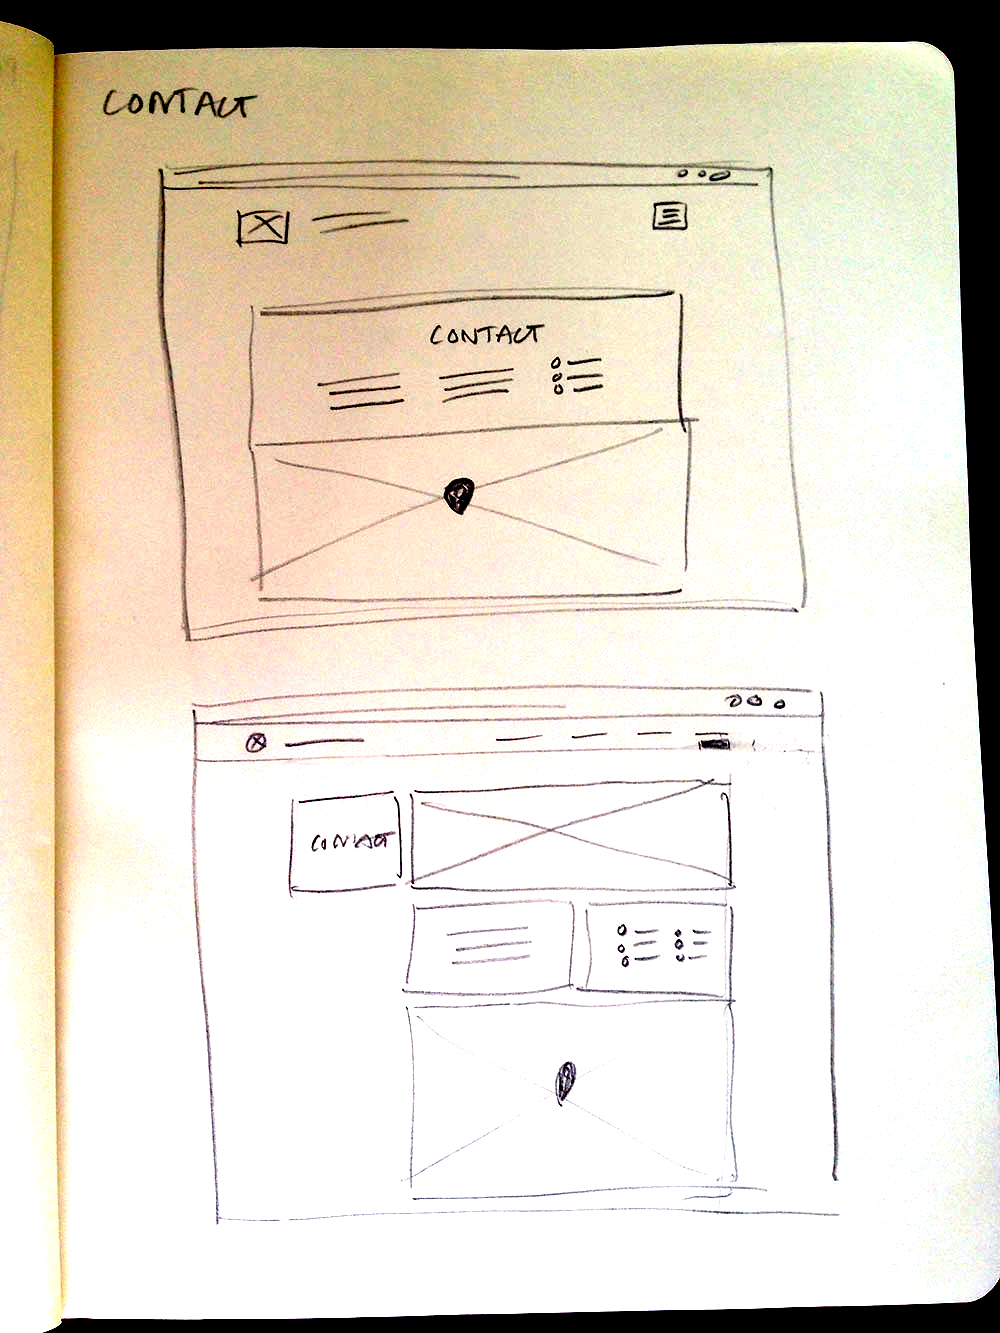 CONTACT
CONTACT
CONTACT